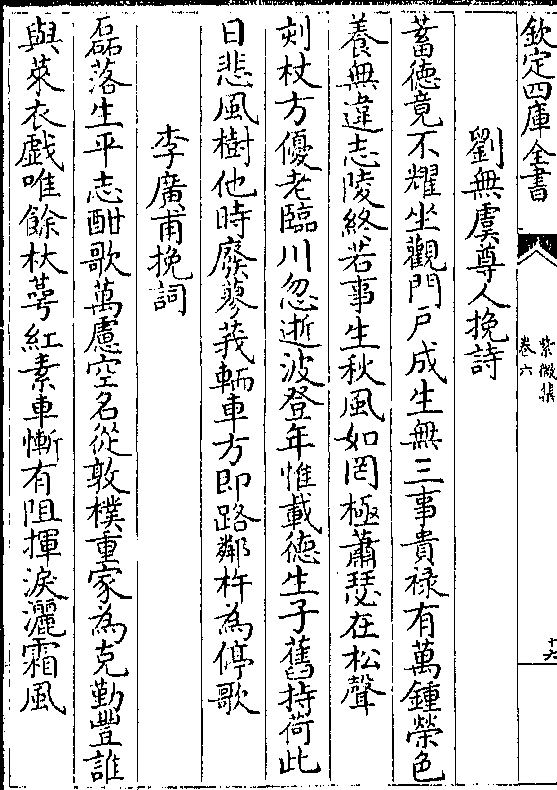 欽定四庫全書
紫微集
卷六
十六
劉無虞尊人挽詩
蓄德竟不耀坐觀門戶成生無三事貴禄有萬鍾榮色
養無違志陵終若事生秋風如罔極蕭瑟在松聲
刻杖方優老臨川忽逝波登年惟載德生子舊持荷此
日悲風樹他時廢蓼莪輀車方即路鄰杵為停歌
李廣甫挽詞
磊落生平志酣歌萬慮空名從敦樸重家為克勤豐誰
與萊衣戲唯餘杕萼紅素車慚有阻揮淚灑霜風